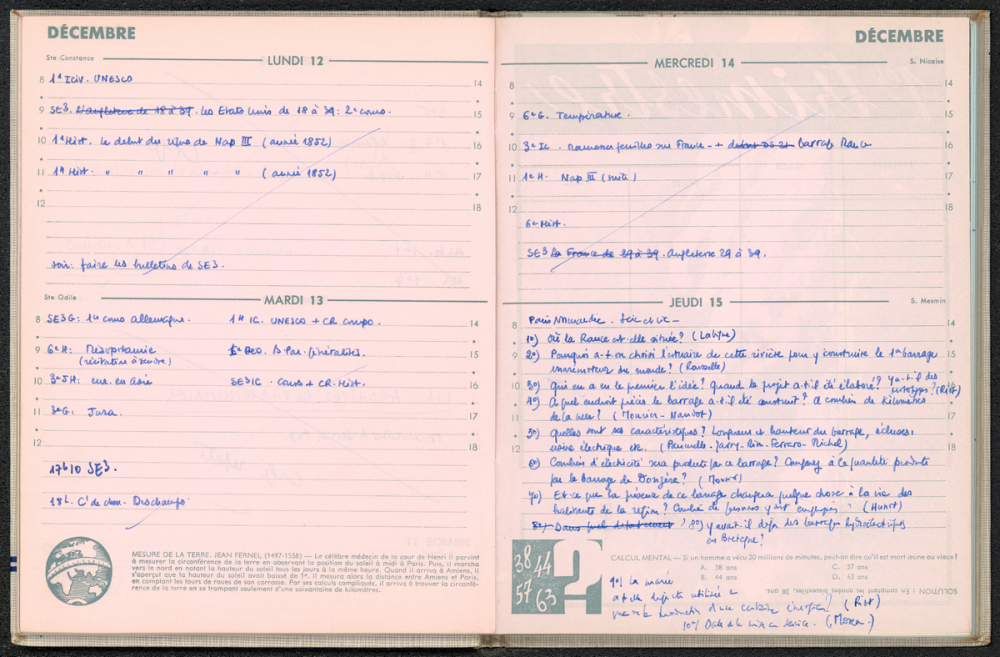 DÉCEMBRE
Ste Constance
LUNDI 12
8 1ª Iciv. UNESCO 14
9 SE3. L'angleterre de 18 à 39. les Etats Unis de 18 à 39: 2e cours. 15
10 1ª Hist. le debut du règne de Nap III (année 1852) 16
11 1ª Hist. " " " " " (année 1852) 17
12 18
soir: faire les bulletins de SE3.
Ste Odile
MARDI 13
8 SE3G: 1er cours allemagne. 1ª IC. UNESCO + CR compo. 14
9 6e H: Mésopotamie B. Par. (généralités). 15
(récitation à rendre)
10 3e 5H: eur. en asie SE3IC. Cours + CR. Hist. 16
11 3e G: Jura. 17
12 18
17h10 SE3.
18h. C' de clen. Deschamps
MESURE DE LA TERRE. JEAN FERNEL (1497-1558) — Le célèbre médecin de la cour de Henri II parvint
à mesurer la circonférence de la terre en observant la position du soleil à midi à Paris. Puis, il marcha
vers le nord en notant la hauteur du soleil tous les jours à la même heure. Quand il arriva à Amiens, il
s'aperçut que la hauteur du soleil avait baissé de 1°. Il mesura alors la distance entre Amiens et Paris,
en comptant les tours de roues de son carrosse. Par ses calculs compliqués, il arriva à trouver la circonfé-
rence de la terre en se trompant seulement d'une soixantaine de kilomètres.
DÉCEMBRE
MERCREDI 14
S. Nicaise
8 14
9 6e G. Température. 15
10 3e IG. ramasser feuilles sur France - + barrage Rance 16
11 1e H. Nap III (suite) 17
12 18
6e Hist.
SE3 La France de 29 à 39. Angleterre 29 à 39.
JEUDI 15
S. Mesmin
8 Paris Normandie. 14
1°) Où la Rance est-elle située? (Labyre)
9 2°) Pourquoi a-t-on choisi l'estuaire de cette rivière pour y construire le 1er barrage 15
marémoteur du monde? (Rousselle)
10 3°) Qui en a eu le premier l'idée? Quand le projet a-t-il été élaboré? Y a-t-il des 16
prototypes? (Riot)
4°) A quel endroit précis le barrage a-t-il été construit? A combien de kilomètres
11 de la mer? (Mounier - Nauvot) 17
5°) Quelles sont ses caractéristiques? Longueur et hauteur du barrage, écluses:
12 usine électrique etc. 18
6°) Combien d'électricité sera produite par ce barrage? Comparez à la quantité produite
par le barrage de Donzère?
7°) Est-ce que la présence de ce barrage changera quelque chose à la vie des
habitants de la région? Combien de personnes y est employées? (Hunot)
8°) Dans quel département 8°) y avait-il déjà des barrages hydroélectriques
en Bretagne?
38 44 57 63 2
CALCUL MENTAL — Si un homme a vécu 20 millions de minutes, peut-on dire qu'il est mort jeune ou vieux?
A. 38 ans C. 57 ans
B. 44 ans D. 63 ans
SOLUTION : En comptant les années bissextiles, 38 ans.
9°) La marée
a-t-elle déjà été utilisée
pour la production d'une certaine énergie? (Riot)
10°) Date de la mise en service.